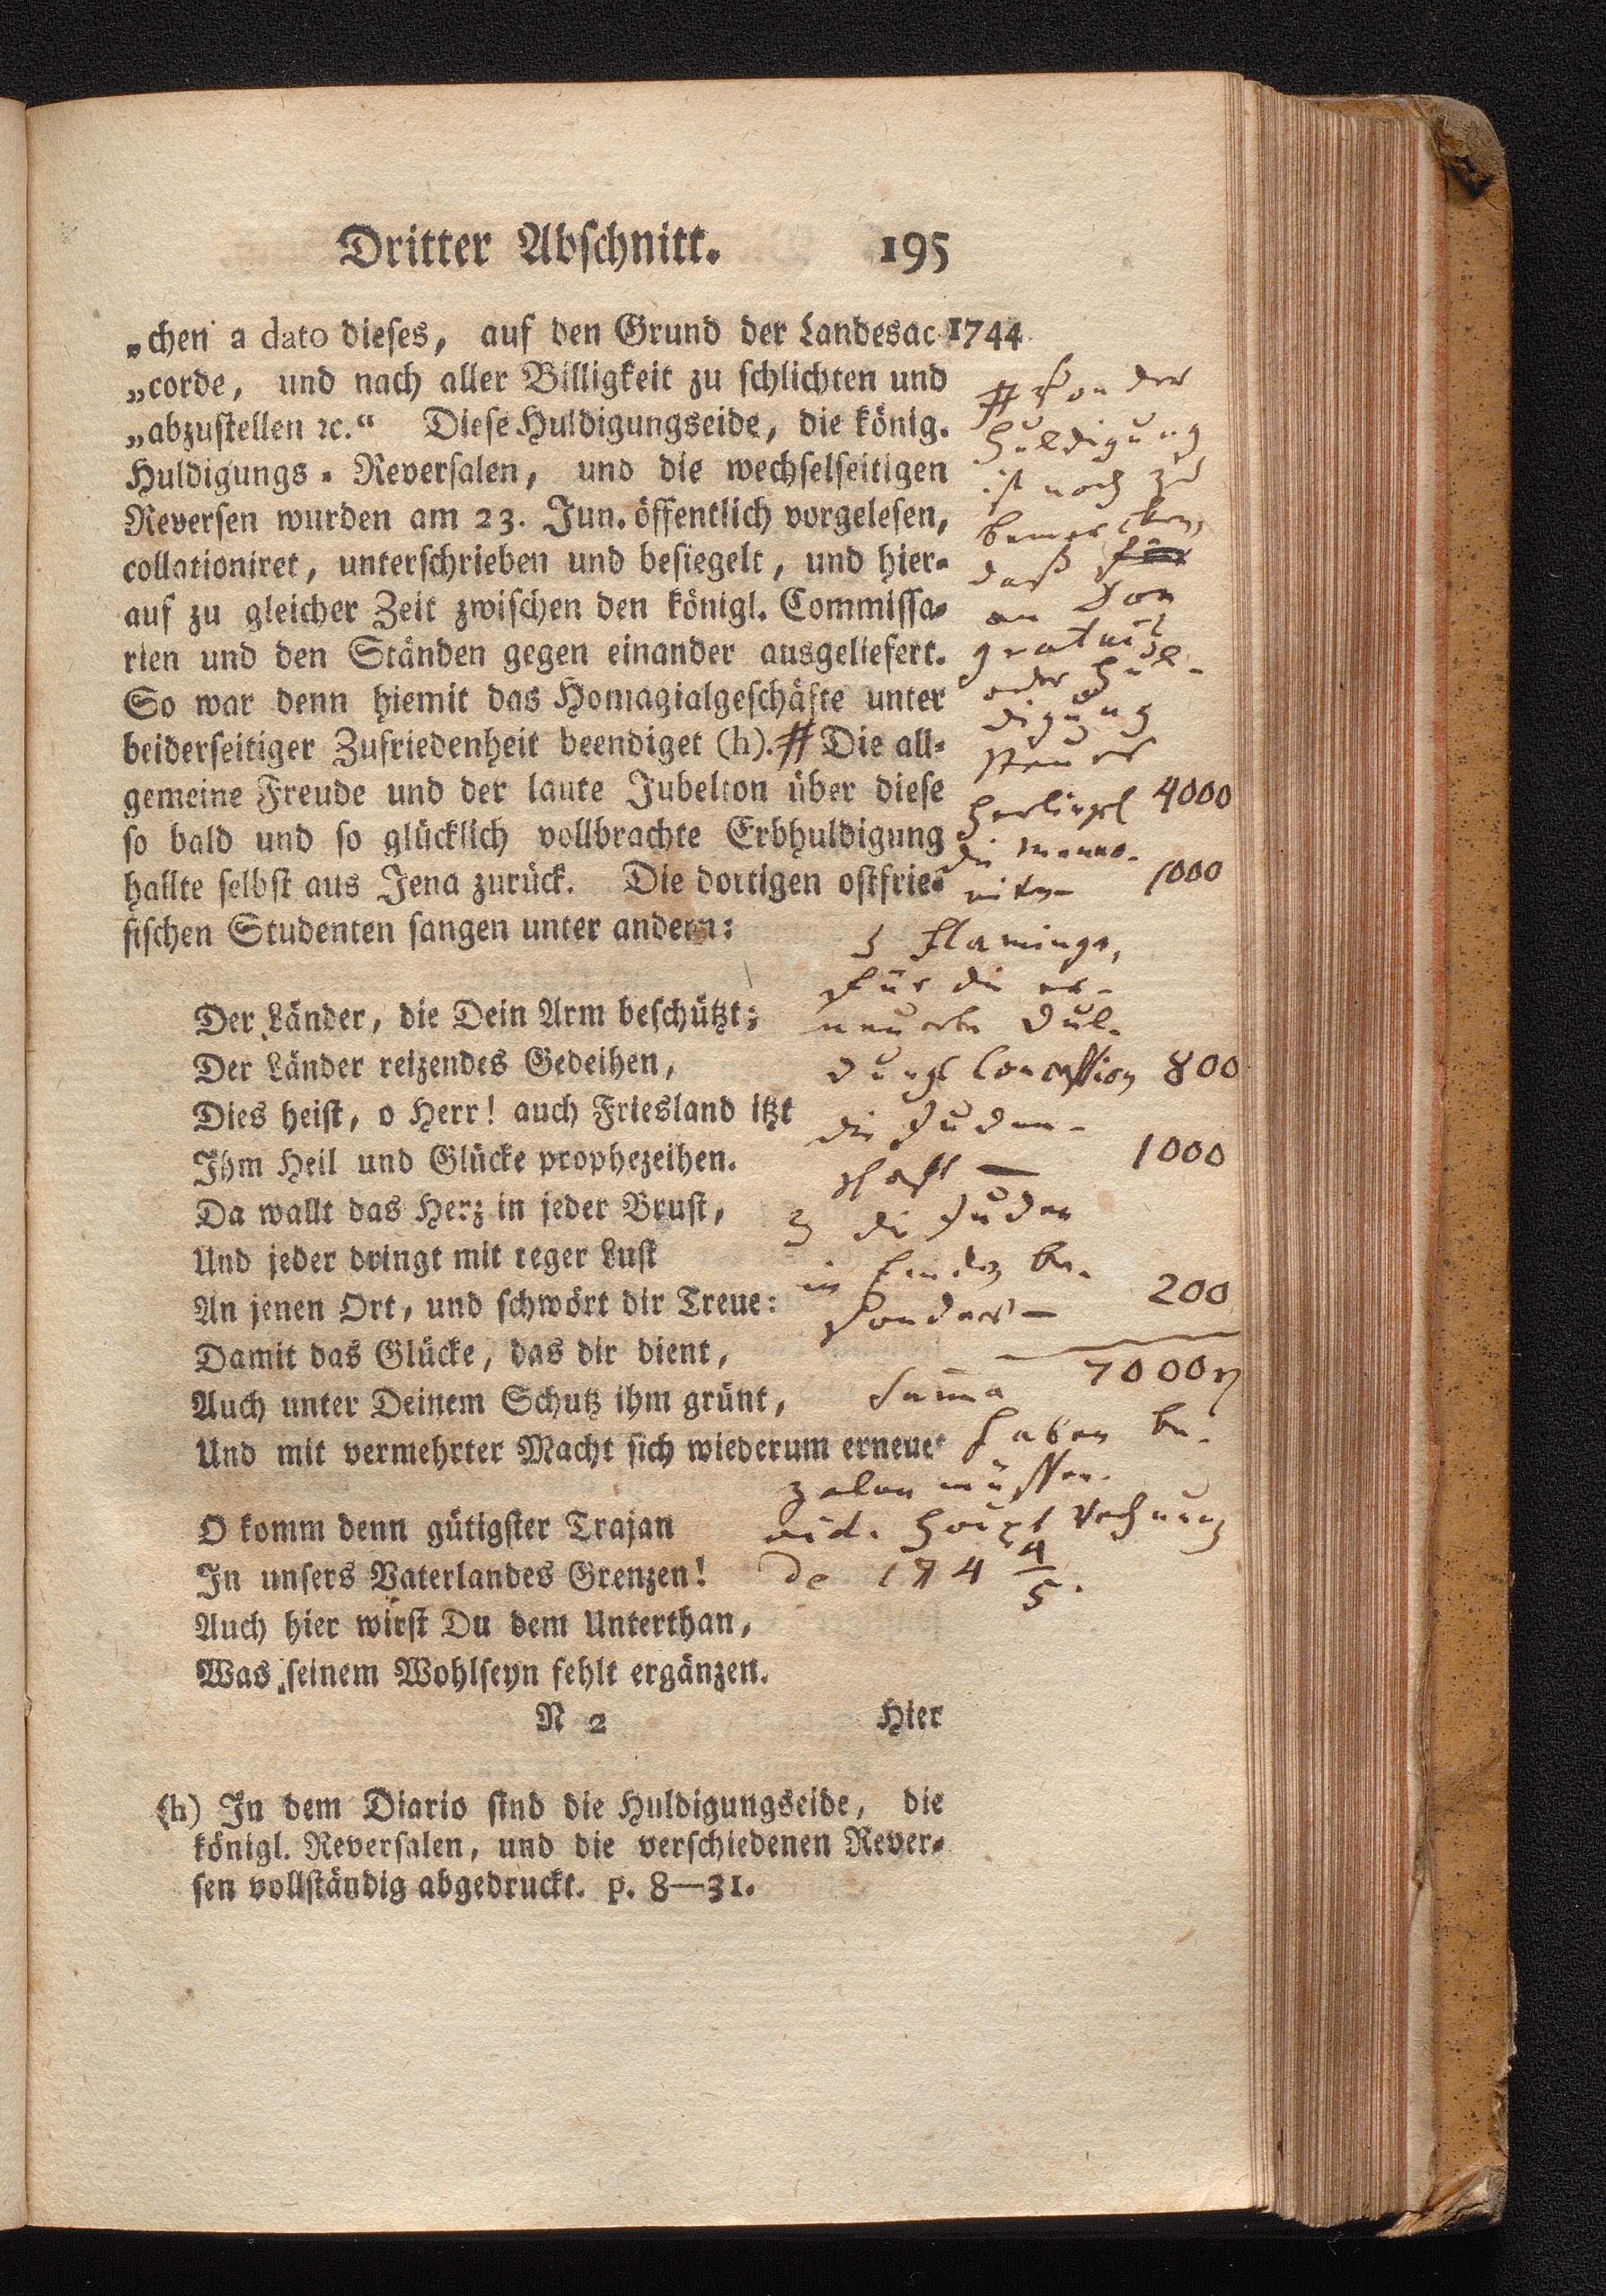 Dritter Abschnitt. 195
„chen a dato dieses, auf den Grund der Landesac- 1744
„corde, und nach aller Billigkeit zu schlichten und
„abzustellen ꝛc.“ Diese Huldigungseide, die könig.
Huldigungs-Reversalen, und die wechselseitigen
Reversen wurden am 23. Jun. öffentlich vorgelesen,
collationiret, unterschrieben und besiegelt, und hier-
auf zu gleicher Zeit zwischen den königl. Commissa-
rien und den Ständen gegen einander ausgeliefert.
So war denn hiemit das Homagialgeschäfte unter
beiderseitiger Zufriedenheit beendiget (h).# Die all-
gemeine Freude und der laute Jubelton über diese
so bald und so glücklich vollbrachte Erbhuldigung
hallte selbst aus Jena zurück. Die dortigen ostfrie-
sischen Studenten sangen unter andern:
Der Länder, die Dein Arm beschützt;
Der Länder reizendes Gedeihen,
Dies heist, o Herr! auch Friesland itzt
Ihm Heil und Glücke prophezeihen.
Da wallt das Herz in jeder Brust,
Und jeder dringt mit reger Lust
An jenen Ort, und schwört dir Treue:
Damit das Glücke, das dir dient,
Auch unter Deinem Schutz ihm grünt,
Und mit vermehrter Macht sich wiederum erneue
O komm denn gütigster Trajan
In unsers Vaterlandes Grenzen!
Auch hier wirst Du dem Unterthan,
Was seinem Wohlseyn fehlt ergänzen.
N 2 Hier
(h) In dem Diario sind die Huldigungseide, die
königl. Reversalen, und die verschiedenen Rever-
sen vollständig abgedruckt. p. 8—31.
# Von der
Huldigung
ist noch zu
bemercken,
daß
an Don
gratuit
oder Hul-
digung
steuer
Harlingrl 4000
die Menno-
niten 1000
3 Flaminge,
für die er-
neuerte Dul-
dungs Concession 800
die Juden-
schaft — 1000
3 die Juden
in Emden be-
sonders — 200
Summa 7000
haben be-
zalen müssen.
vid. Haupt Rechnung
de 174 4/5.